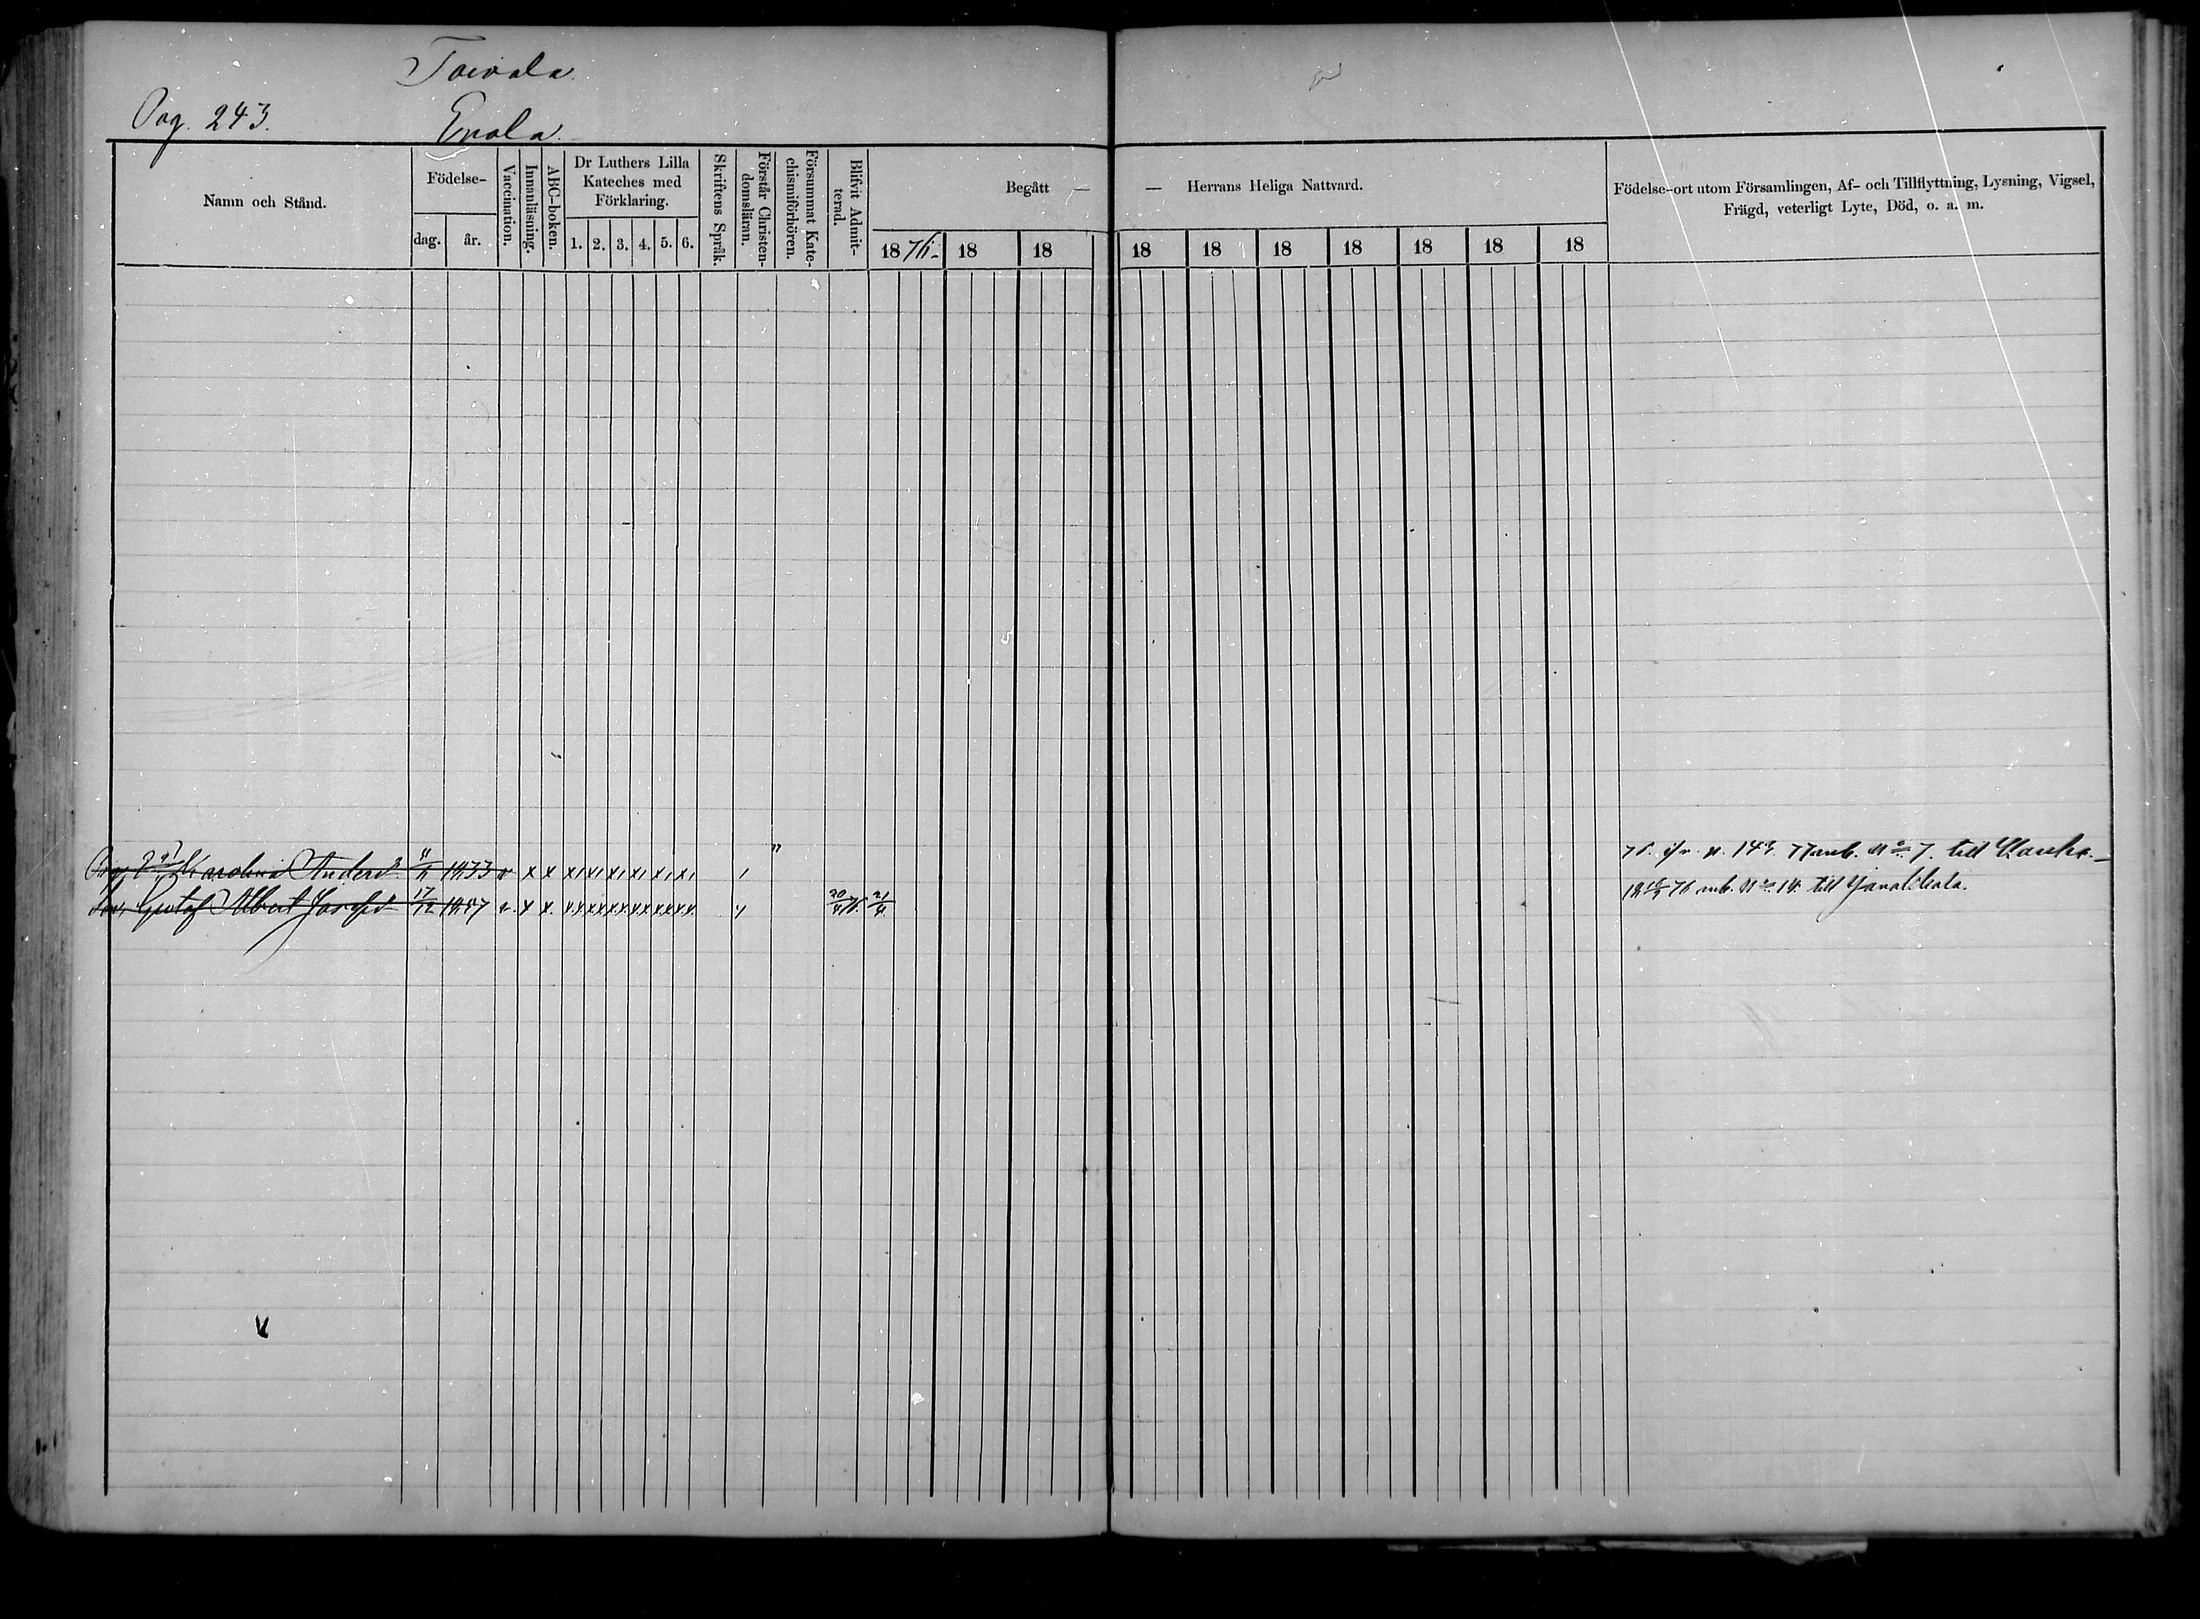 Toivola
Pag. 243. Erola.
Namn och Stånd.
Födelse-
dag. år.
Vaccination.
Innanläsning.
ABC-boken.
Dr Luthers Lilla
Kateches med
Förklaring.
1. 2. 3. 4. 5. 6.
Skriftens Språk.
Förstår Christen-
domsläran.
Försummat Kate-
chismiförhören.
Blifvit Admit-
terad.
Begått — — Herrans Heliga Nattvard.
1876. 18 18 18 18 18 18 18 18 18
Födelse-ort utom Församlingen, Af- och Tillflyttning, Lysning, Vigsel,
Frägd, veterligt Lyte, Död, o. a. m.
Karolina Andersd 1833 v x x x x x x x x 77 mb. No 7. till
Son, Gustaf Albert Josefss 17/12 1857 v. x x. 20/4 76. 21/4 76 mb. No till Janakkala.